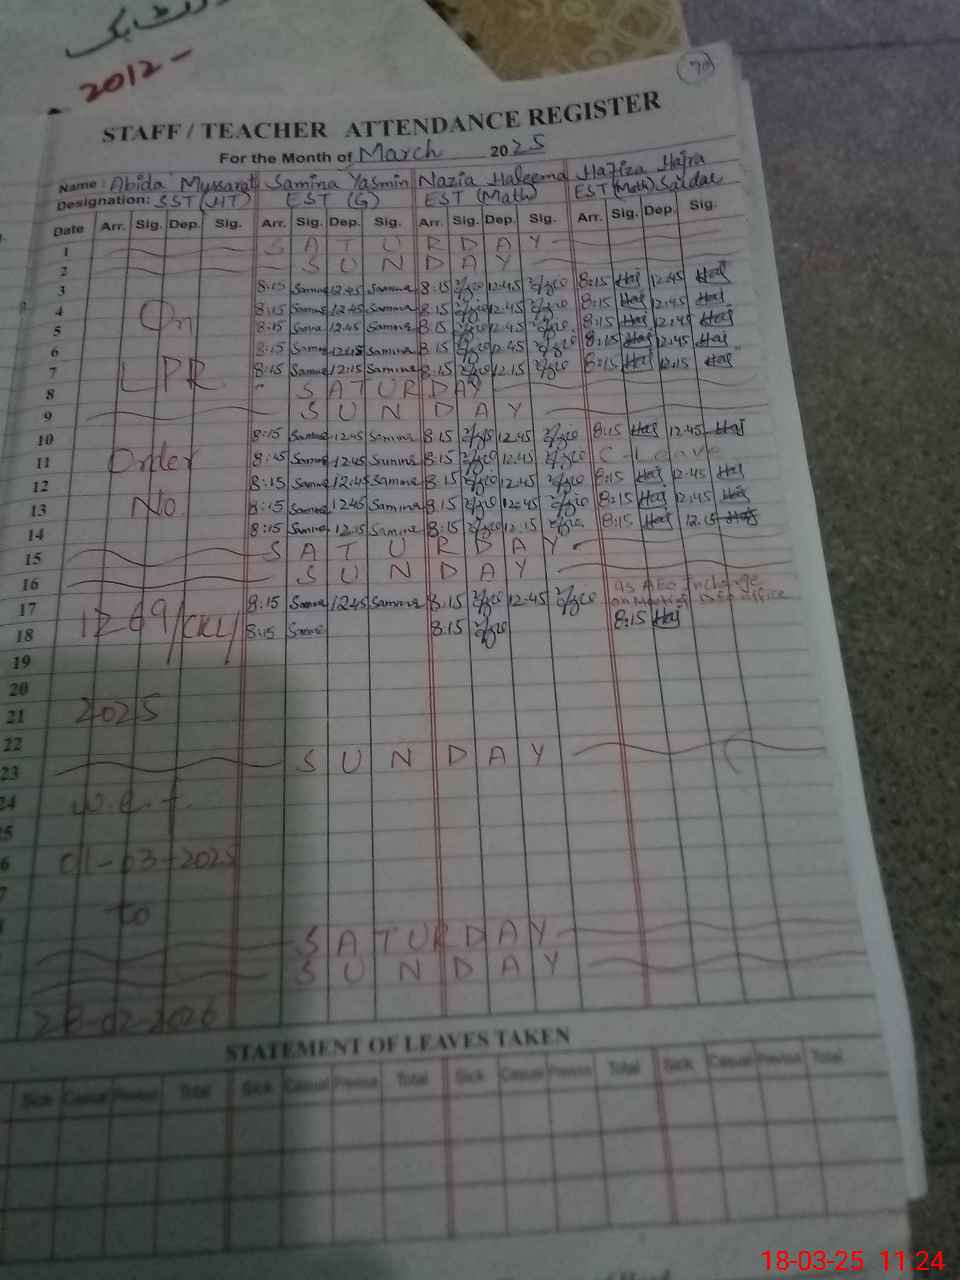 2012-
70
STAFF / TEACHER ATTENDANCE REGISTER
For the Month of March 2025
Name: Abida Mussarat Samina Yasmin Nazia Haleema Hafiza Hajra
Designation: SST (HT) EST (G) EST (Math) EST (Math) Saidae
Date Arr. Sig. Dep. Sig. Arr. Sig. Dep. Sig. Arr. Sig. Dep. Sig. Arr. Sig. Dep. Sig.
1 SATURDAY
2 SUNDAY
3 8:15 Samina 12.45 Samina 8:15 12.45 8:15 Haj 12.45 Haj
4 On 8:15 Samina 12.45 Samina 8:15 12.45 8:15 Haj 12.45 Haj
5 8:15 Samina 12.45 Samina 8:15 12.45 8:15 Haj 12.45 Haj
6 8:15 Samina 12.45 Samina 8.15 12.45 8:15 Haj 12.45 Haj
7 LPR. 8:15 Samina 12:15 Samina 8:15 12.15 8:15 Haj 12.15 Haj
8 SATURDAY
9 SUNDAY
10 8:15 Samina 12.45 Samina 8.15 12.45 8:15 Haj 12.45 Haj
11 Order 8:45 Samina 12.45 Samina 8.15 12.45 C-Leave
12 8:15 Samina 12.45 Samina 8.15 12.45 8:15 Haj 12.45 Haj
13 No. 8:15 Samina 1245 Samina 8.15 12.45 8:15 Haj 12.45 Haj
14 8:15 Samina 12.15 Samina 8:15 12.15 8:15 Haj 12.15 Haj
15 SATURDAY
16 SUNDAY
as AEO Incharge
on Meeting DEO office
17 1269/CKL/ 8:15 Samina 1245 Samina 8.15 12.45
18 8:15 Samina 8:15 8:15 Haj
19
20
21 2025
22
23 SUNDAY
24 w.e.f.
5
6 01-03-2025
7
to
SATURDAY
SUNDAY
28-02-2026
STATEMENT OF LEAVES TAKEN
Sick Casual Previous Total Sick Casual Previous Total Sick Casual Previous Total Sick Casual Previous Total
18-03-25 11:24